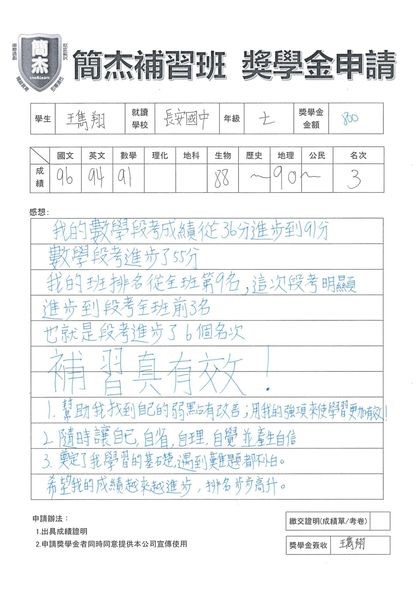 簡杰
簡杰補習班 獎學金申請
學生 王雋翔 就讀學校 長安國中 年級 七 獎學金金額 800
國文 英文 數學 理化 地科 生物 歷史 地理 公民 名次
成績 96 94 91 88 ~90~ 3
感想:
我的數學段考成績從36分進步到91分
數學段考進步了55分
我的班排名從全班第9名,這次段考明顯
進步到段考全班前3名
也就是段考進步了6個名次
補習真有效!
1.幫助我找到自己的弱點有改善;用我的強項來使學習更加有效!
2.隨時讓自己,自省,自理,自覺並產生自信
3.奠定了我學習的基礎,遇到難題都不怕。
希望我的成績越來越進步,排名步步高升。
申請辦法:
1.出具成績證明
2.申請獎學金者同時同意提供本公司宣傳使用
繳交證明(成績單/考卷)
獎學金簽收 王雋翔